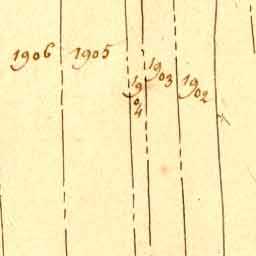 1906
1905
1904
1903
1902